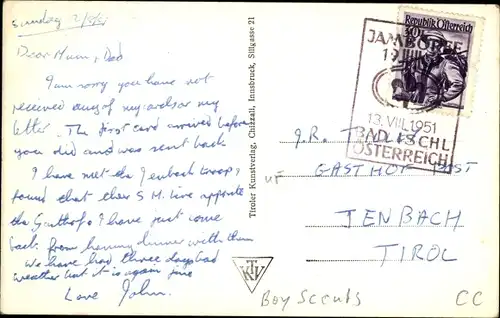 Sunday
Dear Mum, Dad
I am sorry you have not
received any of my cards or my
letter. The first card arrived before
you did and was sent back
I have met the Jenbach troop,
found that their S.M. live opposite
the Gasthof. I have just come
back from having dinner with them
We have had three days bad
weather but it is again fine
Love John.
Tiroler Kunstverlag, Chizzali, Innsbruck, Sillgasse 21
KTV
Republik Österreich
JAMBOREE
13.VIII.1951
BAD ISCHL
ÖSTERREICH
J.R.
GASTHOF POST
JENBACH
TIROL
Boy Scouts
CC